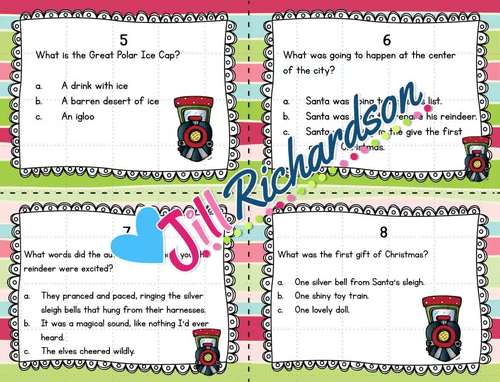 5
What is the Great Polar Ice Cap?
a. A drink with ice
b. A barren desert of ice
c. An igloo
6
What was going to happen at the center
of the city?
a. Santa was going to list.
b. Santa was his reindeer.
c. Santa give the first
Christmas.
Jill Richardson
7
What words did the you
reindeer were excited?
a. They pranced and paced, ringing the silver
sleigh bells that hung from their harnesses.
b. It was a magical sound, like nothing I'd ever
heard.
c. The elves cheered wildly.
8
What was the first gift of Christmas?
a. One silver bell from Santa's sleigh.
b. One shiny toy train.
c. One lovely doll.